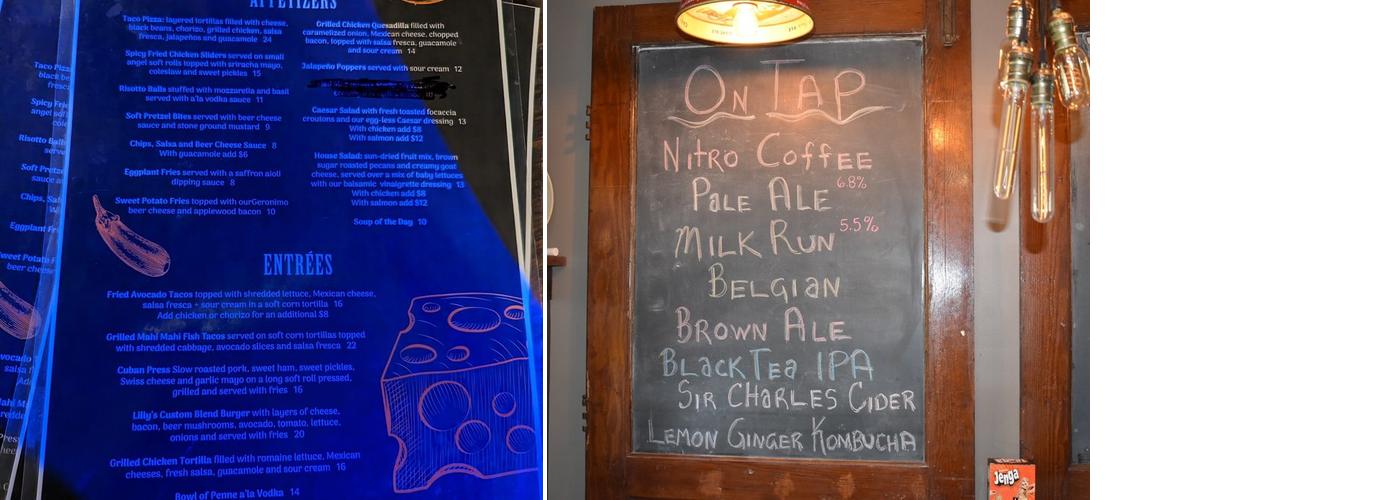 APPETIZERS
Taco Pizza: layered tortillas filled with cheese,
black beans, chorizo, grilled chicken, salsa
fresca, jalapeños and guacamole 24
Spicy Fried Chicken Sliders served on small
angel soft rolls topped with sriracha mayo,
coleslaw and sweet pickles 15
Risotto Balls stuffed with mozzarella and basil
served with a'la vodka sauce 11
Soft Pretzel Bites served with beer cheese
sauce and stone ground mustard 9
Chips, Salsa and Beer Cheese Sauce 8
With guacamole add $6
Eggplant Fries served with a saffron aioli
dipping sauce 8
Sweet Potato Fries topped with ourGeronimo
beer cheese and applewood bacon 10
Grilled Chicken Quesadilla filled with
caramelized onion, Mexican cheese, chopped
bacon, topped with salsa fresca, guacamole
and sour cream 14
Jalapeño Poppers served with sour cream 12
Caesar Salad with fresh toasted focaccia
croutons and our egg-less Caesar dressing 13
With chicken add $8
With salmon add $12
House Salad: sun-dried fruit mix, brown
sugar roasted pecans and creamy goat
cheese, served over a mix of baby lettuces
with our balsamic vinaigrette dressing 13
With chicken add $8
With salmon add $12
Soup of the Day 10
ENTRÉES
Fried Avocado Tacos topped with shredded lettuce, Mexican cheese,
salsa fresca + sour cream in a soft corn tortilla 16
Add chicken or chorizo for an additional $8
Grilled Mahi Mahi Fish Tacos served on soft corn tortillas topped
with shredded cabbage, avocado slices and salsa fresca 22
Cuban Press Slow roasted pork, sweet ham, sweet pickles,
Swiss cheese and garlic mayo on a long soft roll pressed,
grilled and served with fries 16
Lilly's Custom Blend Burger with layers of cheese,
bacon, beer mushrooms, avocado, tomato, lettuce,
onions and served with fries 20
Grilled Chicken Tortilla filled with romaine lettuce, Mexican
cheeses, fresh salsa, guacamole and sour cream 16
Bowl of Penne a'la Vodka 14
ON TAP
NITRO COFFEE
PALE ALE 6.8%
MILK RUN 5.5%
BELGIAN
BROWN ALE
BLACK TEA IPA
SIR CHARLES CIDER
LEMON GINGER KOMBUCHA
Jenga